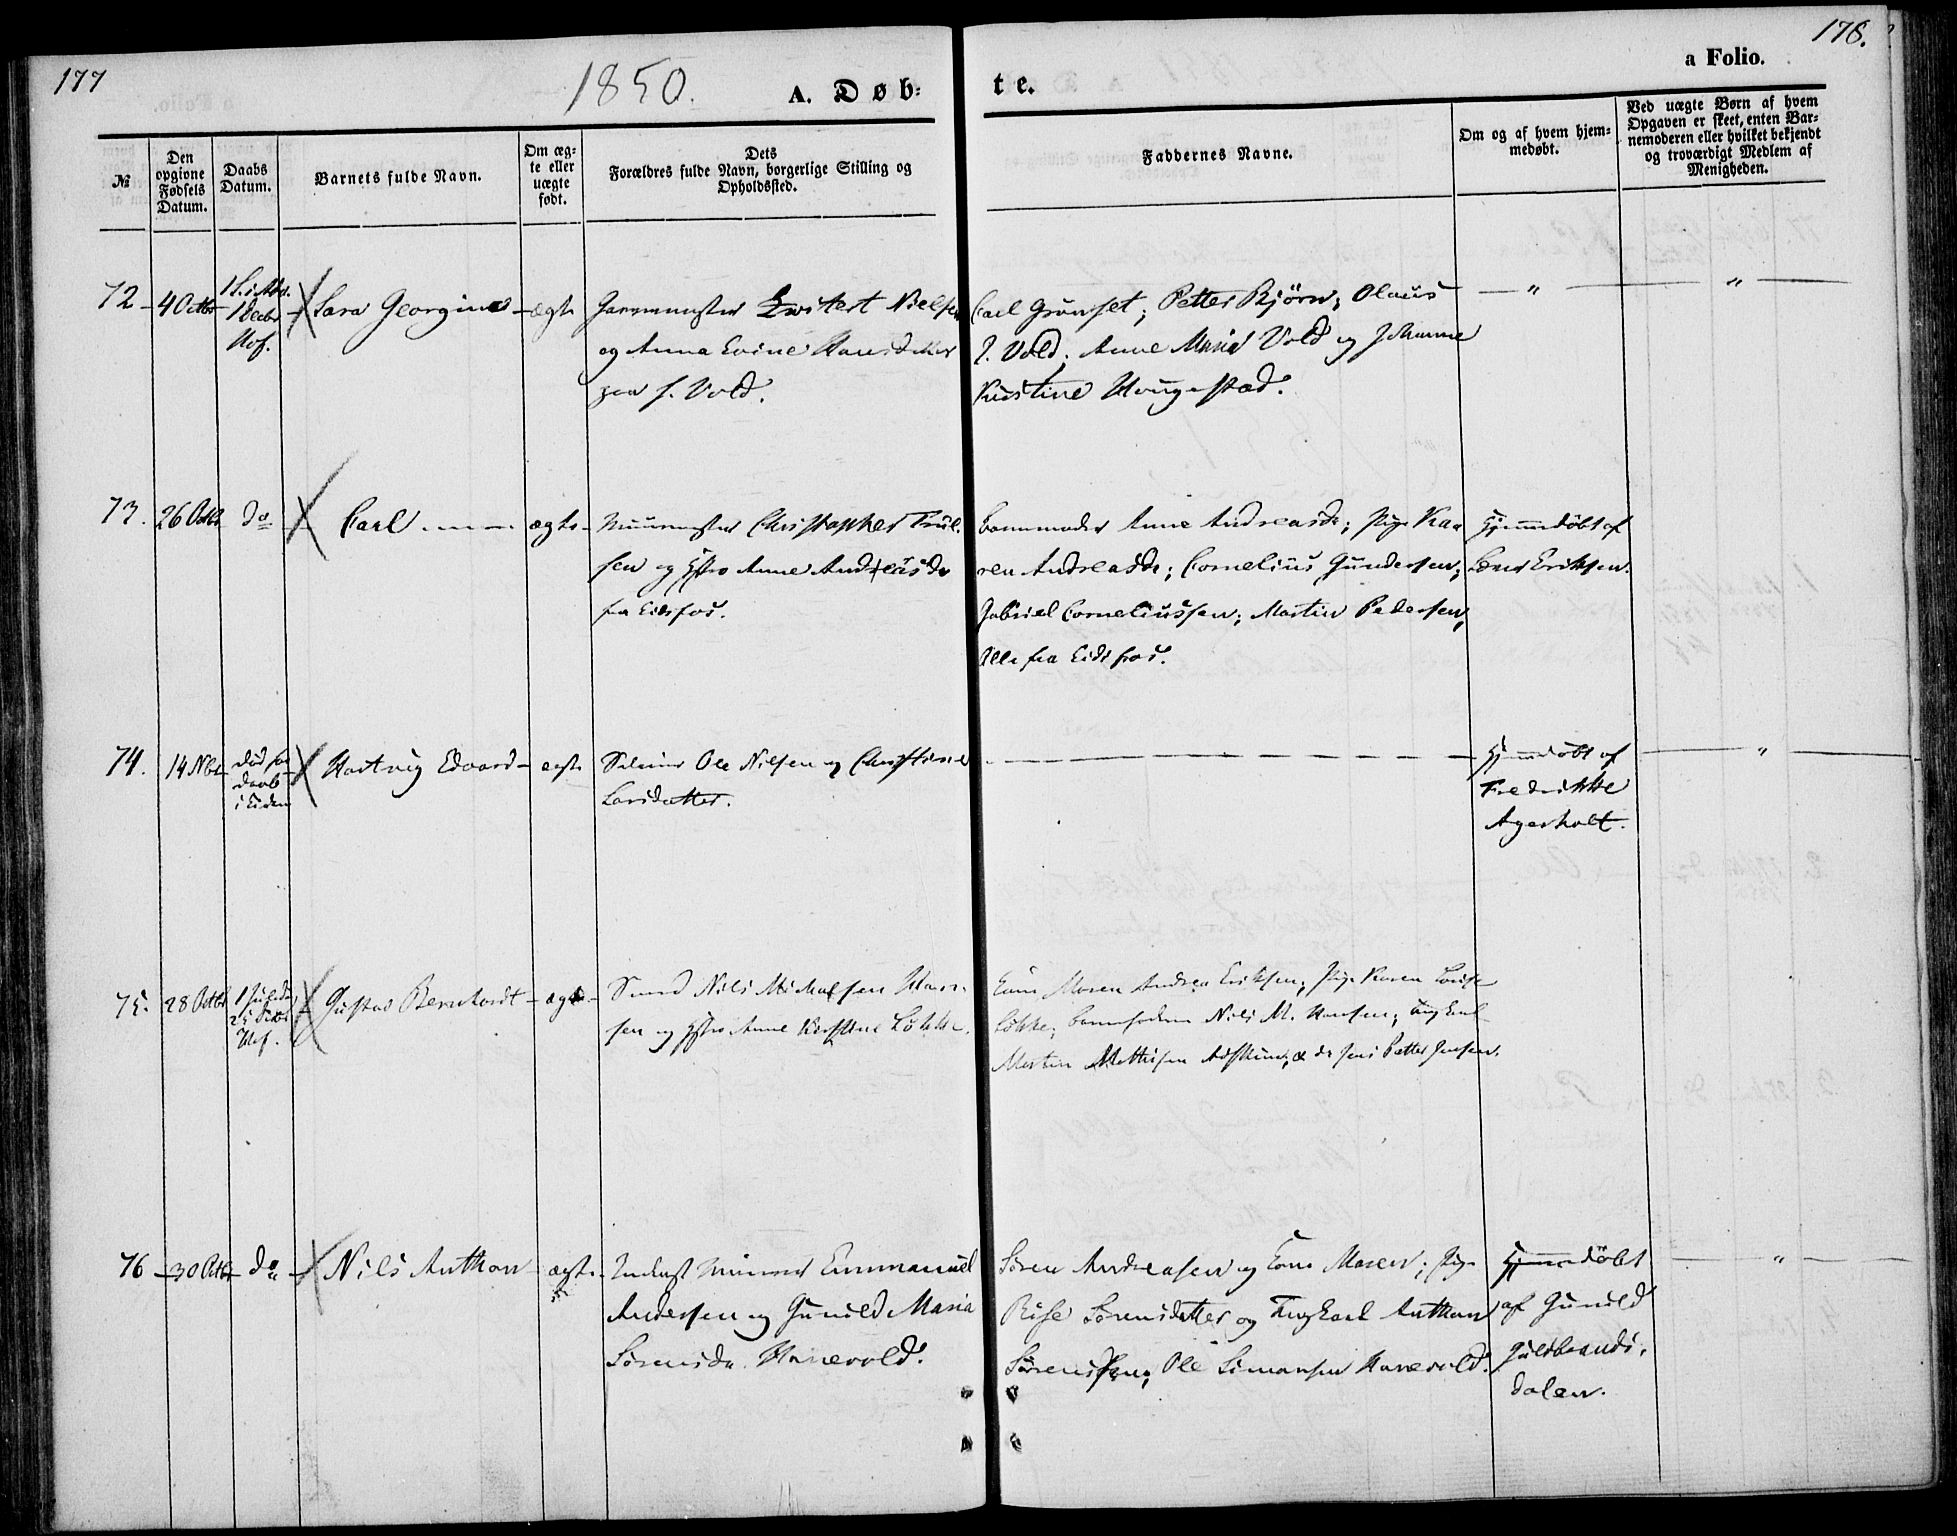 177
1850.
A. Døb-
te.
178.
a Folio.
№
Den opgivne Fødsels Datum.
Daabs Datum.
Barnets fulde Navn.
Om ægte eller uægte født.
Dets Forældres fulde Navn, borgerlige Stilling og Opholdssted.
Faddernes Navne.
Om og af hvem hjemmedøbt.
Ved uægte Børn af hvem Opgaven er skeet, enten Barnemoderen eller hvilket bekjendt og troværdigt Medlem af Menigheden.
72 - 4 Octbr
1 S. i Adv.
1 Decbr
Hof.
Sara Georgine - ægte
Nielsen
og Anna Evine Hansdatter
paa f. Vold.
Carl Grønset; Petter Bjørn; Olaus
J. Vold; Anne Maria Vold og Johanne
Kristine Hougestad.
73. 26 Octbr do Carl ægte -
Muurmester Christopher Trul-
sen og Hstro Anne Andreasdr
fra Eidsfos.
Barnmoder Anne Andreasdr; Pige Ka-
ren Andreasdr; Cornelius Gundersen;
Gabriel Corneliussen; Martin Pedersen,
Alle fra Eidsfos.
Hjemmedøbt af
Lars Eriksen.
74. 14 Nbr
død før
Daab
i Eiden
Hartvig Edvard - ægte
Ole Nilsen og Christine
Larsdatter.
Hjemmedøbt af
Fredrikke
Agerholt.
75. 28 Octbr
1 Juledag
25 Decbr
Hof.
Gustav Bernhardt - ægte -
Smed Nils Michelsen Han-
sen og Hstro Anne Kirstine Løkke.
Maren Andrea Eriksen; Pige Karen Louise
Løkke; Barnefader Nils M. Hansen; Ungkarl
Martin Mathisen &amp; do Jens Petter Jensen.
76 - 30 Octbr do Nils Anthon - ægte -
Emmanuel
Andersen og Gunild Maria
Sørensdr. Hanevold.
Søren Andreasen og Kone Maren; Pige
Rise Sørensdatter og Ungkarl Anthon
Sørensen; Ole Simonsen Hanevold.
Hjemmedøbt
af Gunild
Guldbrands-
dalen.